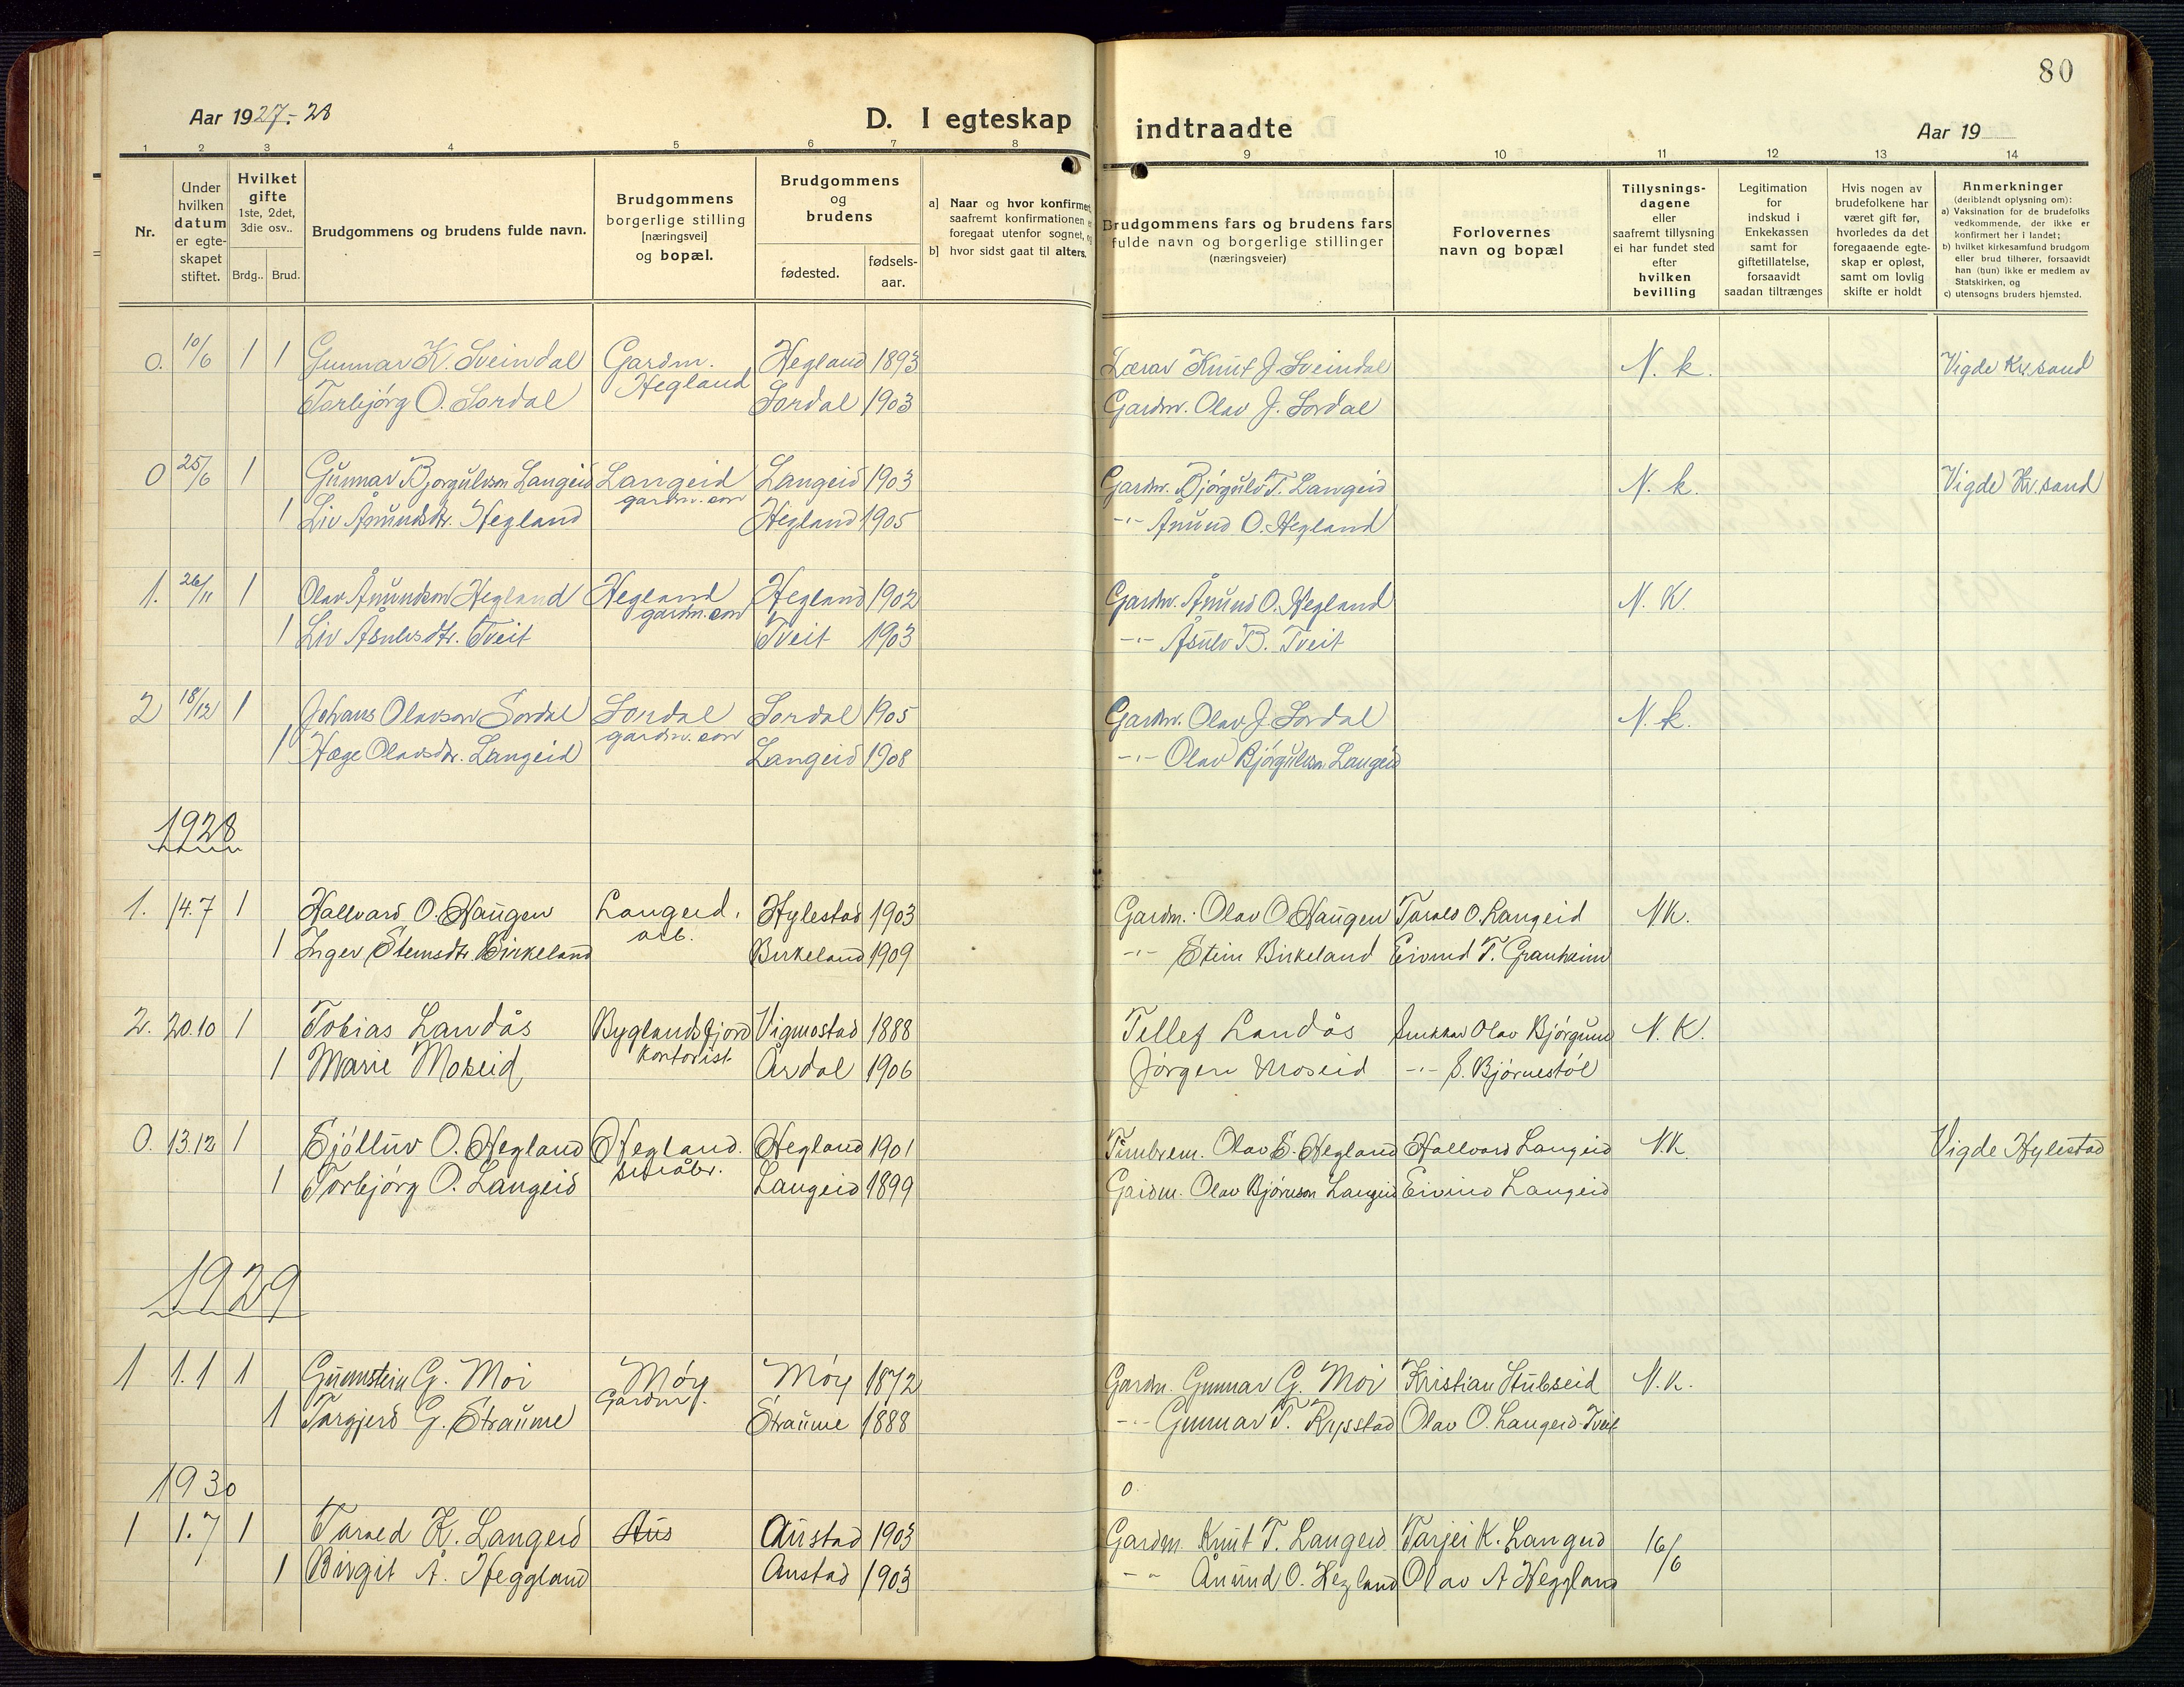 80
Aar 1927-28
D. I egteskap indtraadte
Aar 19
1 2 3 4 5 6 7 8 9 10 11 12 13 14
Nr.
Under hvilken datum er egte-skapet stiftet.
Hvilket gifte 1ste, 2det, 3die osv..
Brdg.. Brud.
Brudgommens og brudens fulde navn.
Brudgommens borgerlige stilling [næringsvei] og bopæl.
Brudgommens og brudens
fødested. fødsels-aar.
a] Naar og hvor konfirmert, saafremt konfirmationen foregaat utenfor sognet,
b] hvor sidst gaat til alters.
Brudgommens fars og brudens fars fulde navn og borgerlige stillinger (næringsveier)
Forlovernes navn og bopæl
Tillysnings-dagene eller saafremt tillysning ei har fundet sted efter hvilken bevilling
Legitimation for indskud i Enkekassen samt for giftetillatelse, forsaavidt saadan tiltrænges
Hvis nogen av brudefolkene har været gift før, hvorledes da det foregaaende egte-skap er opløst, samt om lovlig skifte er holdt
Anmerkninger (deriblandt oplysning om):
a) Vaksination for de brudefolks vedkommende, der ikke er konfirmert her i landet;
b) hvilket kirkesamfund brudgom eller brud tilhører, forsaavidt han (hun) ikke er medlem av Statskirken, og
c) utensogns bruders hjemsted.
0. 10/6 1 1 Gunnar K. Sveindal Gardm. Hegland Hegland 1893 Lærar Knut J. Sveindal N. k. Vigde Kr.sand
Torbjørg O. Sordal Sordal 1903 Gardm. Olav J. Sordal
0 25/6 1 Gunnar Bjorgulvson Langeid Langeid gardm. son Langeid 1903 Gardm. Bjørgulv T. Langeid N. k. Vigde Kr.sand
1 Liv Ånundsdtr. Hegland Hegland 1905 -"- Ånund O. Hegland
1. 26/11 1 Olav Ånundson Hegland Hegland gardm. son Hegland 1902 Gardm. Ånund O. Hegland N. K.
1 Liv Åsulvsdtr. Tveit Tveit 1903 -"- Åsulv B. Tveit
2 18/12 1 Johans Olavson Sordal Sordal gardm. son Sordal 1905 Gardm. Olav J. Sordal N. k.
1 Hæge Olavsdtr. Langeid Langeid 1908 -"- Olav Bjørgulvson Langeid
1928
1. 14.7 1 Hallvard O. Haugen Langeid. arb. Hylestad 1903 Gardm. Olav O Haugen Torals O. Langeid N.K.
1 Inger Steinsdtr Birkeland Birkeland 1909 -"- Stein Birkeland Eivind T. Granheim
2. 20.10 1 Tobias Landås Byglandsfjord kontorist Vigmostad 1888 Tellef Landås Olav Bjørgum N. K.
1 Marie Moseid Årdal 1906 Jørgen Moseid -"- S. Bjørnestøl
0. 13.12 1 Sjølluv O. Hegland Hegland. Hegland 1901 Timbrem. Olav S. Hegland Hallvard Langeid N.K. Vigde Hylestad
1 Torbjørg O. Langeid Langeid 1899 Gardm. Olav Bjørnson Langeid Eivind Langeid
1929
1 1.1 1 Gunnstein G. Moi Møy Gardm. Møy 1872 Gardm. Gunnar G. Moi Kristian Stubseid N.K.
1 Torgjerd G. Straume Straume 1888 -"- Gunnar T. Rysstad Olav O. Langeid Tveit
1930
0
1 1.7 1 Tarald K. Langeid Aus Austad 1903 Gardm. Knut T. Langeid Tarjei K. Langeid 16/6
1 Birgit Å. Heggland Austad 1903 - " Ånund O. Hegland Olav A Heggland